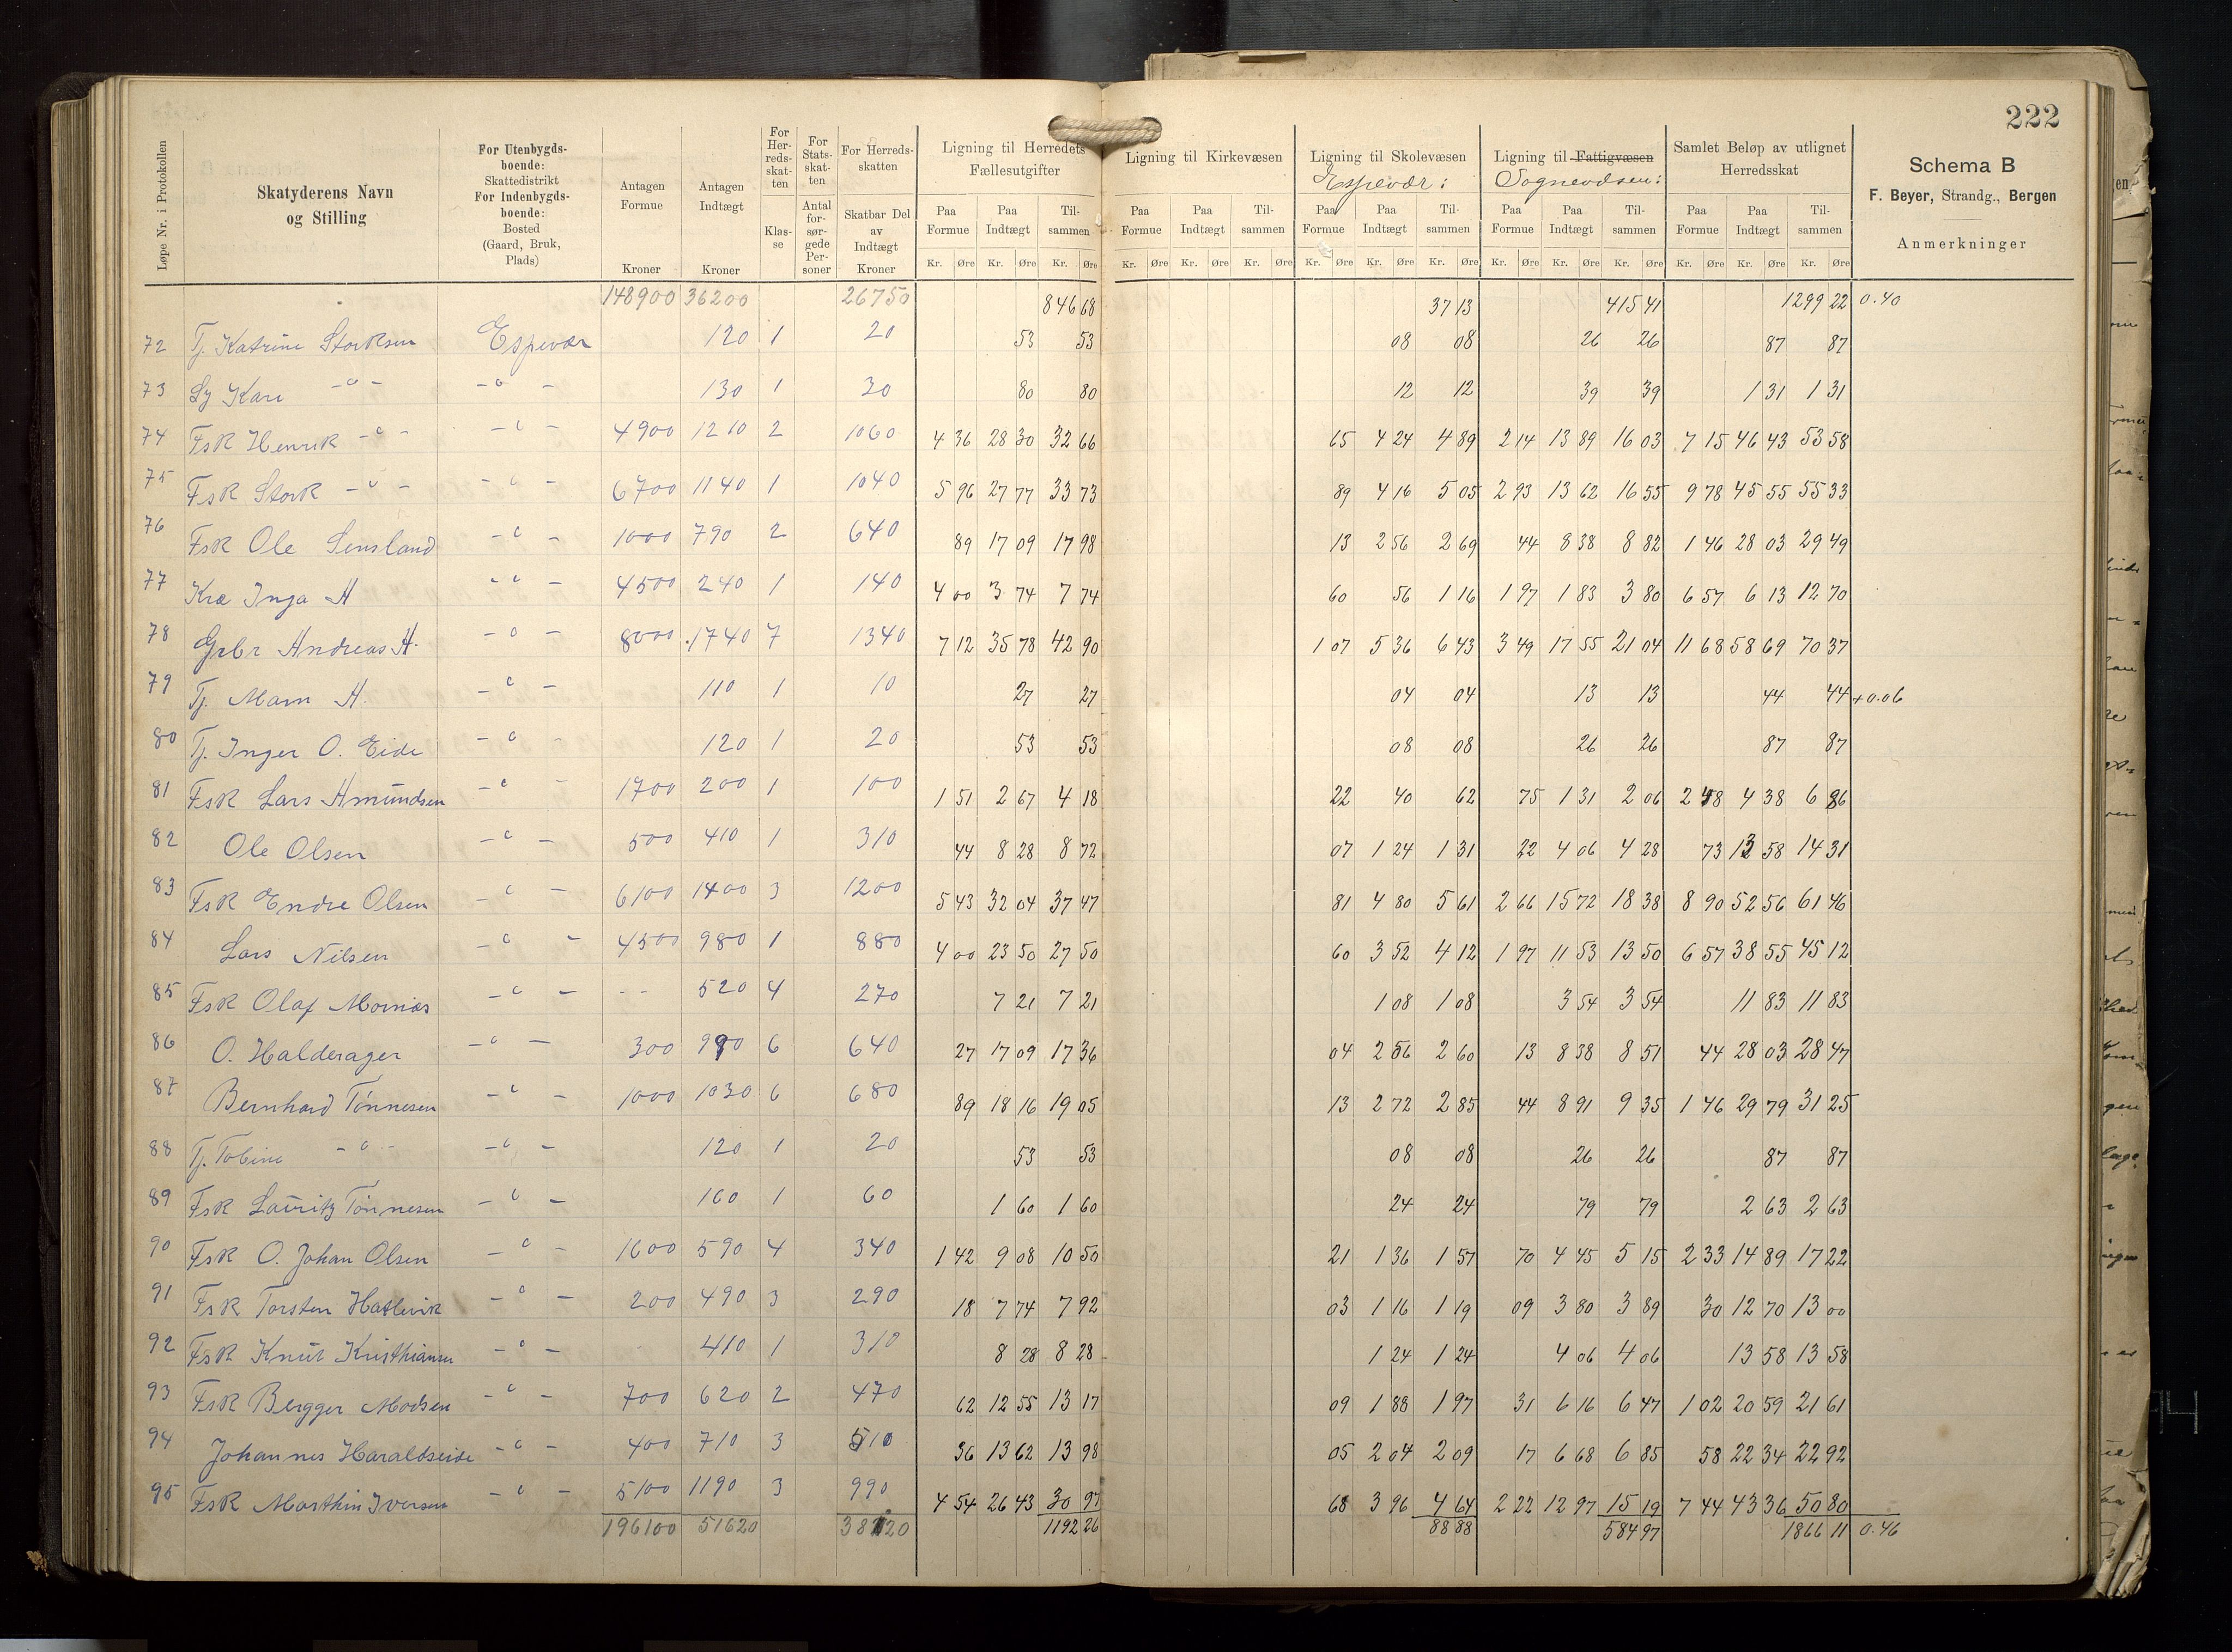 222
Løpe Nr. i Protokollen
Skatyderens Navn og Stilling
For Utenbygdsboende: Skattedistrikt For Indenbygdsboende: Bosted (Gaard, Bruk, Plads)
Antagen Formue Kroner
Antagen Indtægt Kroner
For Herredsskatten Klasse
For Statsskatten Antal forsørgede Personer
For Herredsskatten Skatbar Del av Indtægt Kroner
Ligning til Herredets Fællesutgifter
Ligning til Kirkevæsen
Ligning til Skolevæsen Espevær:
Ligning til Fattigvæsen Sognevæsen:
Samlet Beløp av utlignet Herredsskat
Paa Formue Paa Indtægt Tilsammen Paa Formue Paa Indtægt Tilsammen Paa Formue Paa Indtægt Tilsammen Paa Formue Paa Indtægt Tilsammen Paa Formue Paa Indtægt Tilsammen
Kr. Øre Kr. Øre Kr. Øre Kr. Øre Kr. Øre Kr. Øre Kr. Øre Kr. Øre Kr. Øre Kr. Øre Kr. Øre Kr. Øre Kr. Øre Kr. Øre Kr. Øre
Schema B
F. Beyer, Strandg., Bergen
Anmerkninger
148900 36200 26750 846 68 37 13 415 41 1299 22 0.40
72 Tj. Katrine Storksen Espevær 120 1 20 53 53 08 08 26 26 87 87
73 Sy Kari -"- -"- 130 1 30 80 80 12 12 39 39 1 31 1 31
74 Fsk Henrik -"- -"- 4900 1210 2 1060 4 36 28 30 32 66 65 4 24 4 89 2 14 13 89 16 03 7 15 46 43 53 58
75 Fsk Stork -"- -"- 6700 1140 1 1040 5 96 27 77 33 73 89 4 16 5 05 2 93 13 62 16 55 9 78 45 55 55 33
76 Fsk Ole Sensland -"- 1000 790 2 640 89 17 09 17 98 13 2 56 2 69 44 8 38 8 82 1 46 28 03 29 49
77 Kræ Inga H -"- 4500 240 1 140 4 00 3 74 7 74 60 56 1 16 1 97 1 83 3 80 6 57 6 13 12 70
78 Grbr Andreas H. -"- 8000 1740 7 1340 7 12 35 78 42 90 1 07 5 36 6 43 3 49 17 55 21 04 11 68 58 69 70 37
79 Tj. Marn H. -"- 110 1 10 27 27 04 04 13 13 44 44 +0.06
80 Tj. Inger O. Eide -"- 120 1 20 53 53 08 08 26 26 87 87
81 Fsk Lars Amundsen -"- 1700 200 1 100 1 51 2 67 4 18 22 40 62 75 1 31 2 06 2 48 4 38 6 86
82 Ole Olsen -"- 500 410 1 310 44 8 28 8 72 07 1 24 1 31 22 4 06 4 28 73 13 58 14 31
83 Fsk Endre Olsen -"- 6100 1400 3 1200 5 43 32 04 37 47 81 4 80 5 61 2 66 15 72 18 38 8 90 52 56 61 46
84 Lars Nilsen -"- 4500 980 1 880 4 00 23 50 27 50 60 3 52 4 12 1 97 11 53 13 50 6 57 38 55 45 12
85 Fsk Olaf -"- -- 520 4 270 7 21 7 21 1 08 1 08 3 54 3 54 11 83 11 83
86 O. Halderager -"- 300 990 6 640 27 17 09 17 36 04 2 56 2 60 13 8 38 8 51 44 28 03 28 47
87 Bernhard Tönnesen -"- 1000 1030 6 680 89 18 16 19 05 13 2 72 2 85 44 8 91 9 35 1 46 29 79 31 25
88 Tj. Tobine -"- -"- 120 1 20 53 53 08 08 26 26 87 87
89 Fsk Lauritz Tönnesen -"- 160 1 60 1 60 1 60 24 24 79 79 2 63 2 63
90 Fsk O. Johan Olsen -"- 1600 590 4 340 1 42 9 08 10 50 21 1 36 1 57 70 4 45 5 15 2 33 14 89 17 22
91 Fsk Torsten Hatlevik -"- 200 490 3 290 18 7 74 7 92 03 1 16 1 19 09 3 80 3 89 30 12 70 13 00
92 Fsk Knut Kristhiansen -"- 410 1 310 8 28 8 28 1 24 1 24 4 06 4 06 13 58 13 58
93 Fsk Bergger Madsen -"- 700 620 2 470 62 12 55 13 17 09 1 88 1 97 31 6 16 6 47 1 02 20 59 21 61
94 Johannes Haraldseide -"- 400 710 3 510 36 13 62 13 98 05 2 04 2 09 17 6 68 6 85 58 22 34 22 92
95 Fsk Marthin Iversen -"- 5100 1190 3 990 4 54 26 43 30 97 68 3 96 4 64 2 22 12 97 15 19 7 44 43 36 50 80
196100 51620 38220 1192 26 88 88 584 97 1866 11 0.46